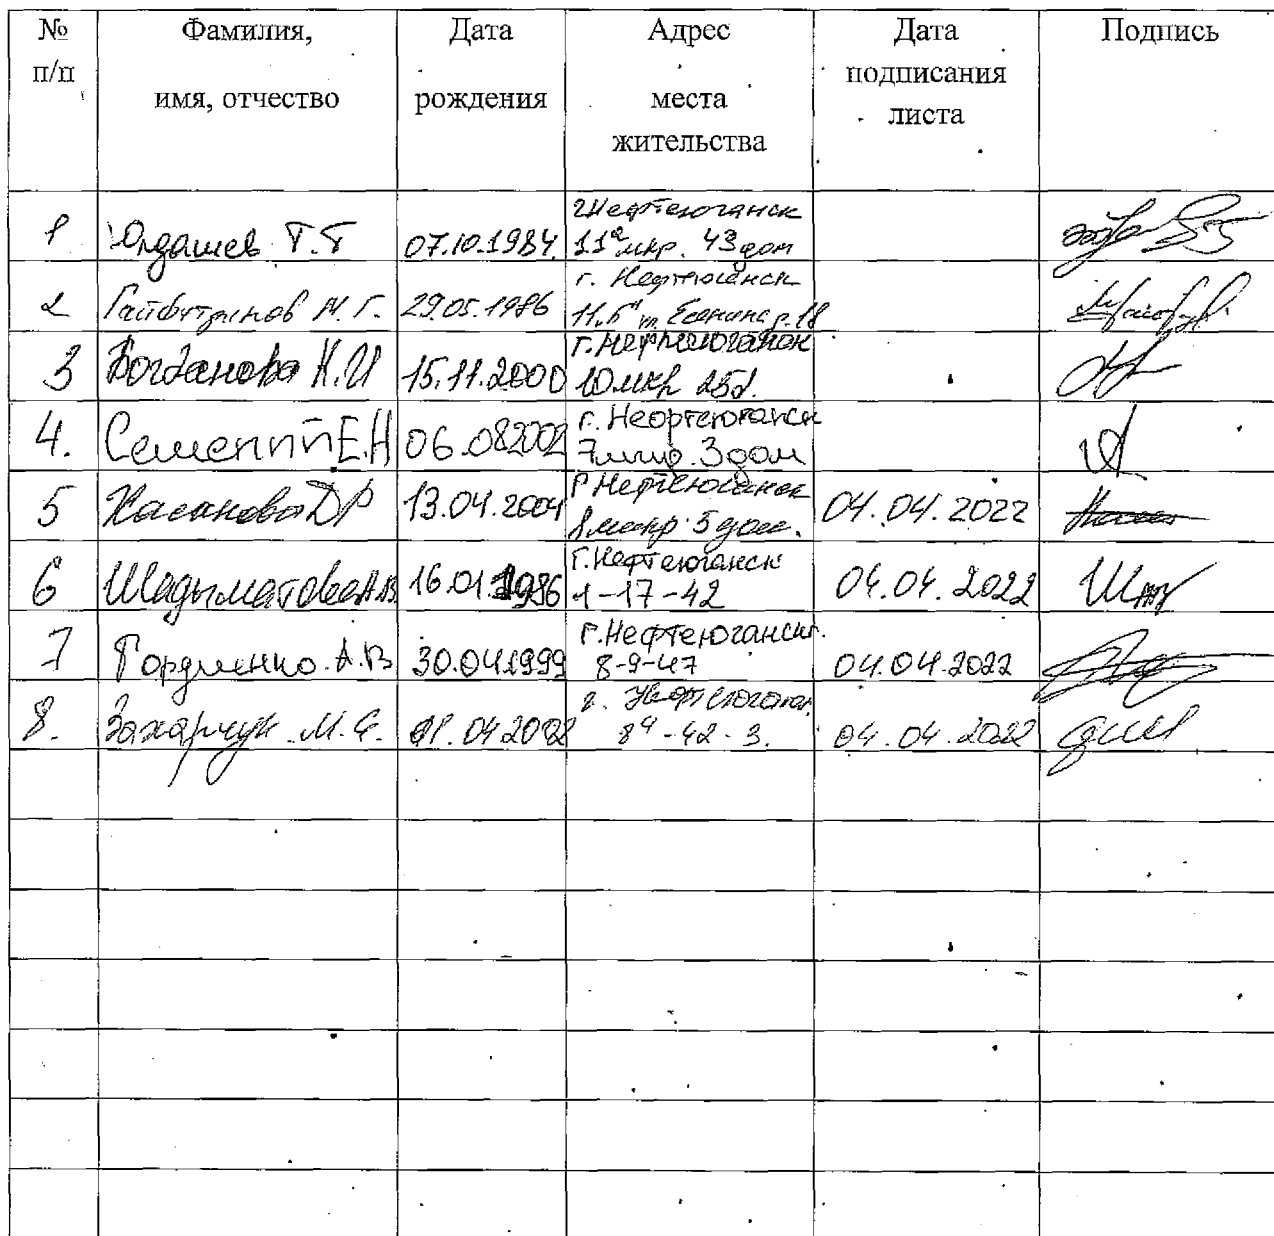 № п/п
Фамилия, имя, отчество
Дата рождения
Адрес места жительства
Дата подписания листа
Подпись
1 Юлдашев Т.Т 07.10.1984. г Нефтеюганск
11а мкр. 43 дом
2 Гайфутдинов М.Г. 29.05.1986 г. Нефтеюганск
11"Б" Есенина 18
3 Богданова К.И 15.11.2000 г. Нефтеюганск
10 мкр 25д.
4. Е.Н 06.082002 г. Нефтеюганск
7 мкр. 3 дом
5 Хасанова ДР 13.04.2004 г Нефтеюганск 04.04.2022
8 микр. 5 дом.
6 Шадыматова А.В 16.01.1986 г. Нефтеюганск 04.04.2022
1-17-42
7 Гордиенко. А.В 30.04.1999 г. Нефтеюганск. 04.04.2022
8-9-47
8. Захарчук М.С. 04.2002 г. Нефтеюганск 04.04.2022
8а-42-3.